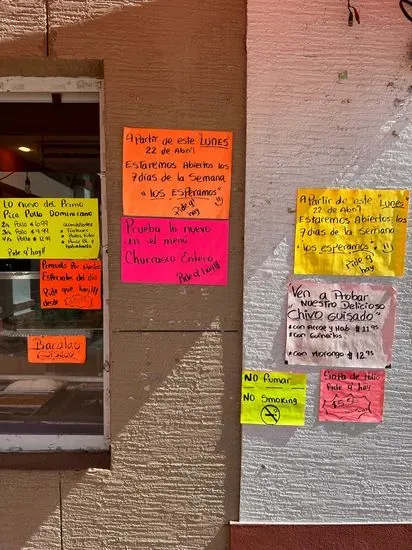 Lo nuevo del Primo
Pica Pollo Dominicano
2n Pollo $6.99
3n Pollo $9.99
4n Pollo $12.99
Pide q' hay
Acompañados
* Tostones
* Papas fritas
Pregunta Por Nuestros
Especiales del dia
Pide que hay!!!
desde
Bacalao
A Partir de este "LUNES"
22 de Abril
Estaremos Abiertos los
7 dias de la Semana
"los ESPERAMOS"
Pide q'
hay
Prueba lo nuevo
en el menu
Churrasco Entero
Pide q' hay!!!
A Partir de este "Lunes"
22 de Abril
Estaremos Abiertos los
7 dias de la Semana
"los esperamos"
Pide q'
hay
Ven a Probar
Nuestro Delicioso
"CHIVO Guisado"
*con Arroz y Hab $11.95
*Con Guineitos
*con Mofongo $12.95
NO Fumar
NO Smoking
Sopa de Pollo
Pide q' hay